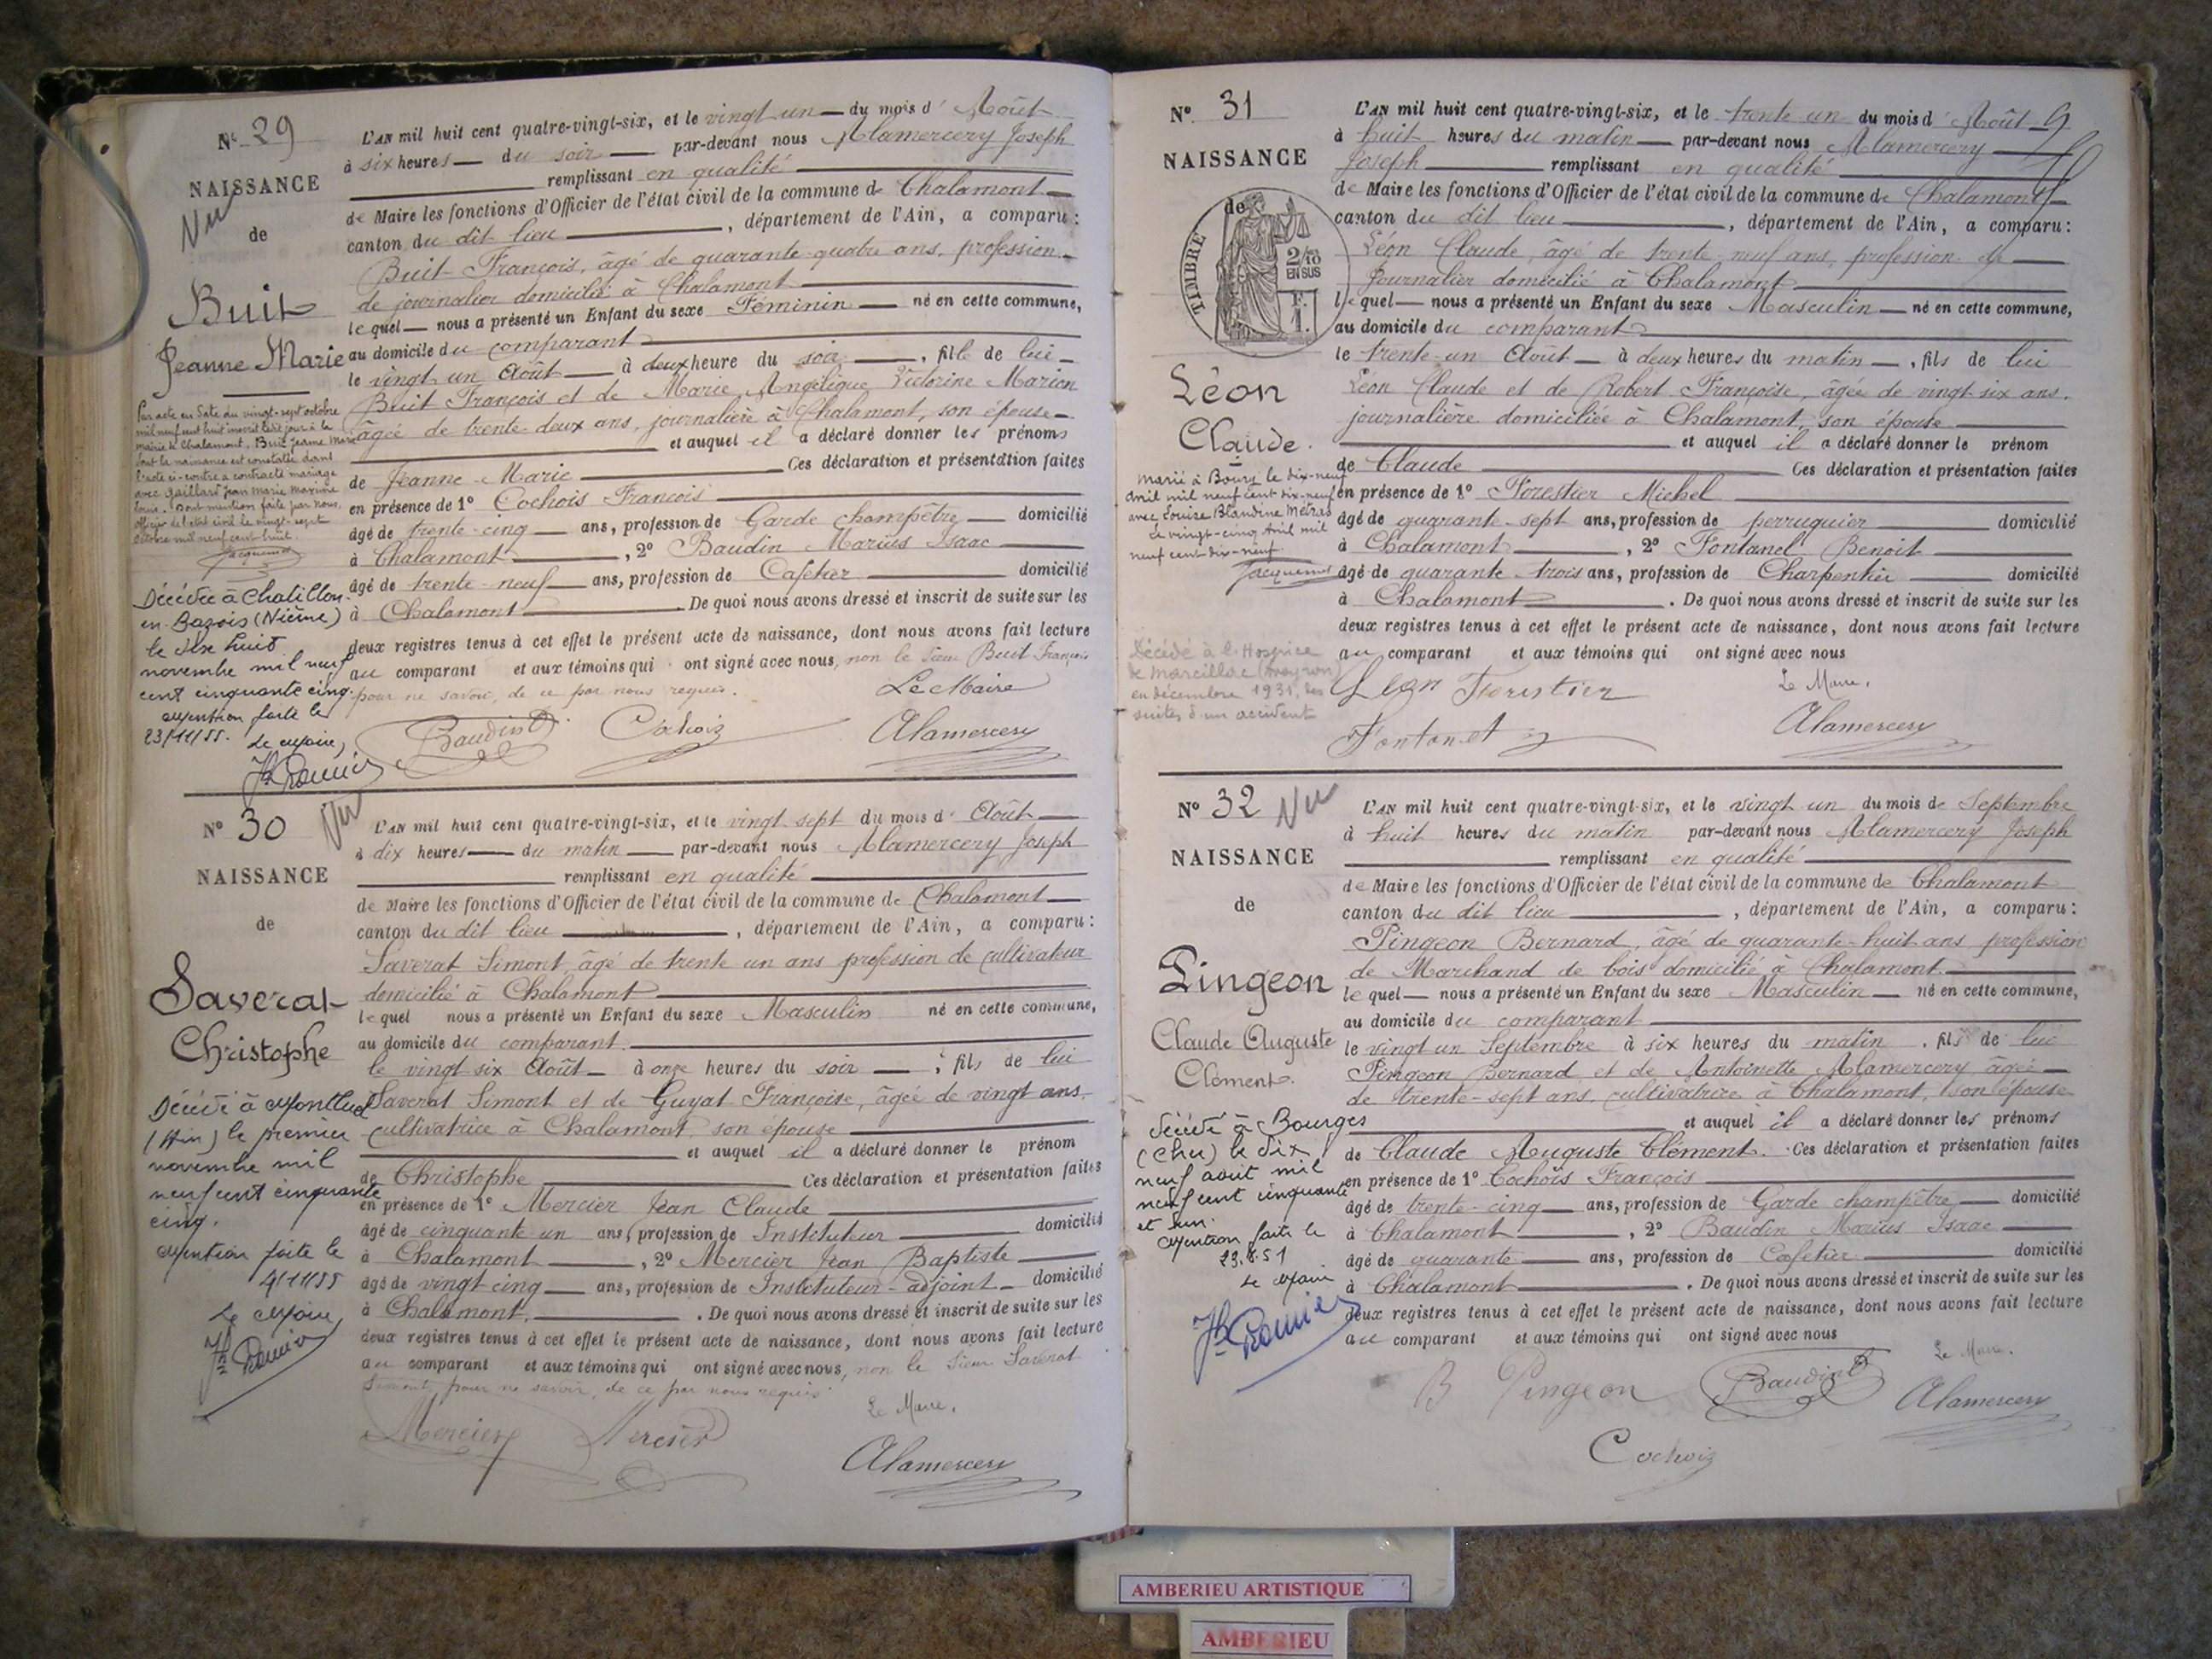 Nº 29
NAISSANCE
Vu
de
Buit
Jeanne Marie
Par acte en date du vingt-sept octobre
mil neuf cent huit inscrit ledit jour à la
mairie de Chalamont, Buit Jeanne Marie
dont la naissance est constatée dans
l'acte ci-contre a contracté mariage
avec Gaillard Jean Marie Maxime
Louis. Dont mention faite par nous,
officier de l'état civil le vingt-sept
octobre mil neuf cent huit.
Jacquemot
Décédée à Chatillon
en Bazois (Nièvre)
le dix huit
novembre mil neuf
cent cinquante cinq.
Mention faite le
23/11/55. Le Maire,
L'AN mil huit cent quatre-vingt-six, et le vingt un du mois d' Août
à six heures du soir par-devant nous Alamercery Joseph
remplissant en qualité
de Maire les fonctions d'Officier de l'état civil de la commune de Chalamont
canton du dit lieu, département de l'Ain, a comparu:
Buit François, âgé de quarante-quatre ans, profession
de journalier domicilié à Chalamont
lequel nous a présenté un Enfant du sexe Féminin né en cette commune,
au domicile du comparant
le vingt un Août à deux heure du soir, fille de lui
Buit François et de Marie Angélique Victorine Marion
âgée de trente-deux ans, journalière à Chalamont, son épouse
et auquel il a déclaré donner les prénoms
de Jeanne-Marie Ces déclaration et présentation faites
en présence de 1º Cochois François
âgé de trente-cinq ans, profession de Garde champêtre domicilié
à Chalamont, 2º Baudin Marius Isaac
âgé de trente-neuf ans, profession de Cafetier domicilié
à Chalamont. De quoi nous avons dressé et inscrit de suite sur les
deux registres tenus à cet effet le présent acte de naissance, dont nous avons fait lecture
au comparant et aux témoins qui ont signé avec nous, non le sieur Buit François
pour ne savoir, de ce par nous requis.
Le Maire
Baudin Cochoiz Alamercery
Nº 30
Vu
NAISSANCE
de
Saverat
Christophe
Décédé à Montluel
(Ain) le premier
novembre mil
neuf cent cinquante
cinq.
Mention faite le
4/11/55
Le Maire,
L'AN mil huit cent quatre-vingt-six, et le vingt sept du mois d' Août
à dix heures du matin par-devant nous Alamercery Joseph
remplissant en qualité
de Maire les fonctions d'Officier de l'état civil de la commune de Chalamont
canton du dit lieu, département de l'Ain, a comparu:
Saverat Simont, âgé de trente un ans profession de cultivateur
domicilié à Chalamont
lequel nous a présenté un Enfant du sexe Masculin né en cette commune,
au domicile du comparant.
le vingt six Août à onze heures du soir, fils de lui
Saverat Simont et de Guyat Françoise, âgée de vingt ans,
cultivatrice à Chalamont, son épouse
et auquel il a déclaré donner le prénom
de Christophe Ces déclaration et présentation faites
en présence de 1º Mercier Jean Claude
âgé de cinquante un ans, profession de Instituteur domicilié
à Chalamont, 2º Mercier Jean Baptiste
âgé de vingt cinq ans, profession de Instituteur-adjoint domicilié
à Chalamont. De quoi nous avons dressé et inscrit de suite sur les
deux registres tenus à cet effet le présent acte de naissance, dont nous avons fait lecture
au comparant et aux témoins qui ont signé avec nous, non le sieur Saverat
Simont, pour ne savoir, de ce par nous requis.
Le Maire,
Mercier Mercier
Alamercery
Nº 31
NAISSANCE
de
TIMBRE
2/10
EN SUS
F.
1.
Léon
Claude.
Marié à Bourg le dix-neuf
Avril mil neuf cent dix-neuf
avec Louise Blandine Métras
Le vingt-cinq Avril mil
neuf cent dix-neuf
Jacquemot
Décédé à l'Hospice
de Marcillac (Aveyron)
en décembre 1931, des
suites d'un accident
L'AN mil huit cent quatre-vingt-six, et le trente un du mois d' Août
à huit heures du matin par-devant nous Alamercery
Joseph remplissant en qualité
de Maire les fonctions d'Officier de l'état civil de la commune de Chalamont
canton du dit lieu, département de l'Ain, a comparu:
Léon Claude, âgé de trente neuf ans, profession de
Journalier domicilié à Chalamont
lequel nous a présenté un Enfant du sexe Masculin né en cette commune,
au domicile du comparant
le trente-un Août à deux heures du matin, fils de lui
Léon Claude et de Robert Françoise, âgée de vingt-six ans,
journalière domiciliée à Chalamont, son épouse
et auquel il a déclaré donner le prénom
de Claude Ces déclaration et présentation faites
en présence de 1º Forestier Michel
âgé de quarante-sept ans, profession de perruquier domicilié
à Chalamont, 2º Fontanel Benoit
âgé de quarante-trois ans, profession de Charpentier domicilié
à Chalamont. De quoi nous avons dressé et inscrit de suite sur les
deux registres tenus à cet effet le présent acte de naissance, dont nous avons fait lecture
au comparant et aux témoins qui ont signé avec nous
Léon Forestier Le Maire,
Fontanel Alamercery
Nº 32
Vu
NAISSANCE
de
Pingeon
Claude Auguste
Clément.
Décédé à Bourges
(Cher) le dix
neuf août mil
neuf cent cinquante
et un.
Mention faite le
23.8.51
Le Maire
L'AN mil huit cent quatre-vingt-six, et le vingt un du mois de Septembre
à huit heures du matin par-devant nous Alamercery Joseph
remplissant en qualité
de Maire les fonctions d'Officier de l'état civil de la commune de Chalamont
canton du dit lieu, département de l'Ain, a comparu:
Pingeon Bernard, âgé de quarante-huit ans profession
de Marchand de bois domicilié à Chalamont.
lequel nous a présenté un Enfant du sexe Masculin né en cette commune,
au domicile du comparant
le vingt un Septembre à six heures du matin, fils de lui
Pingeon Bernard et de Antoinette Alamercery âgée
de trente-sept ans, cultivatrice à Chalamont, son épouse
et auquel il a déclaré donner les prénoms
de Claude Auguste Clément. Ces déclaration et présentation faites
en présence de 1º Cochois François
âgé de trente-cinq ans, profession de Garde champêtre domicilié
à Chalamont, 2º Baudin Marius Isaac
âgé de quarante ans, profession de Cafetier domicilié
à Chalamont. De quoi nous avons dressé et inscrit de suite sur les
deux registres tenus à cet effet le présent acte de naissance, dont nous avons fait lecture
au comparant et aux témoins qui ont signé avec nous
Le Maire.
B Pingeon Baudin Alamercery
Cochoiz
AMBERIEU ARTISTIQUE
AMBERIEU